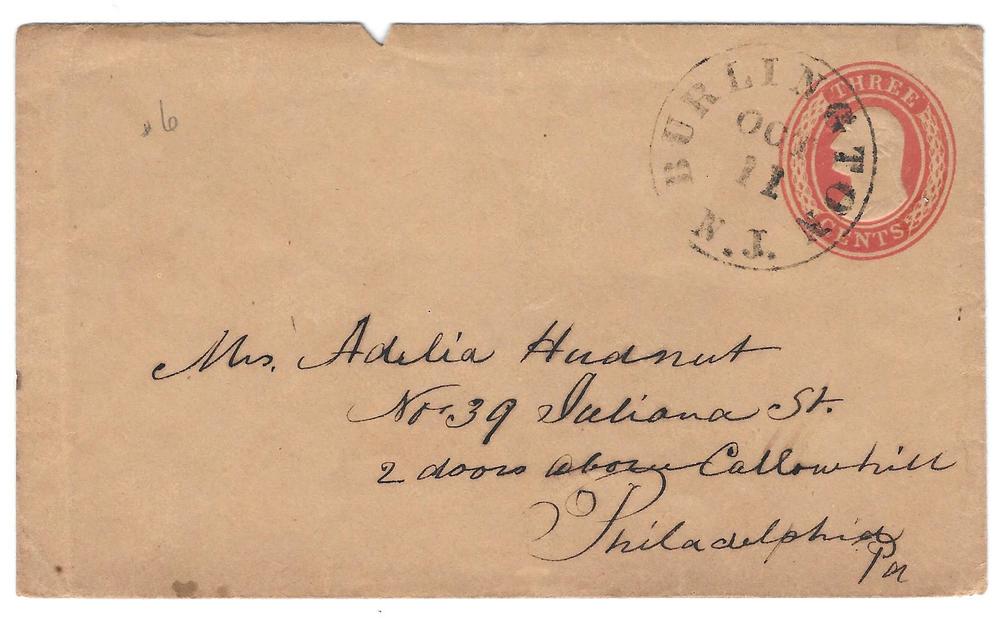 6
BURLINGTON N.J.
OCT
11
THREE
CENTS
Mrs. Adelia Hudnut
No 39 Juliana St.
2 doors above Callowhill
Philadelphia
Pa